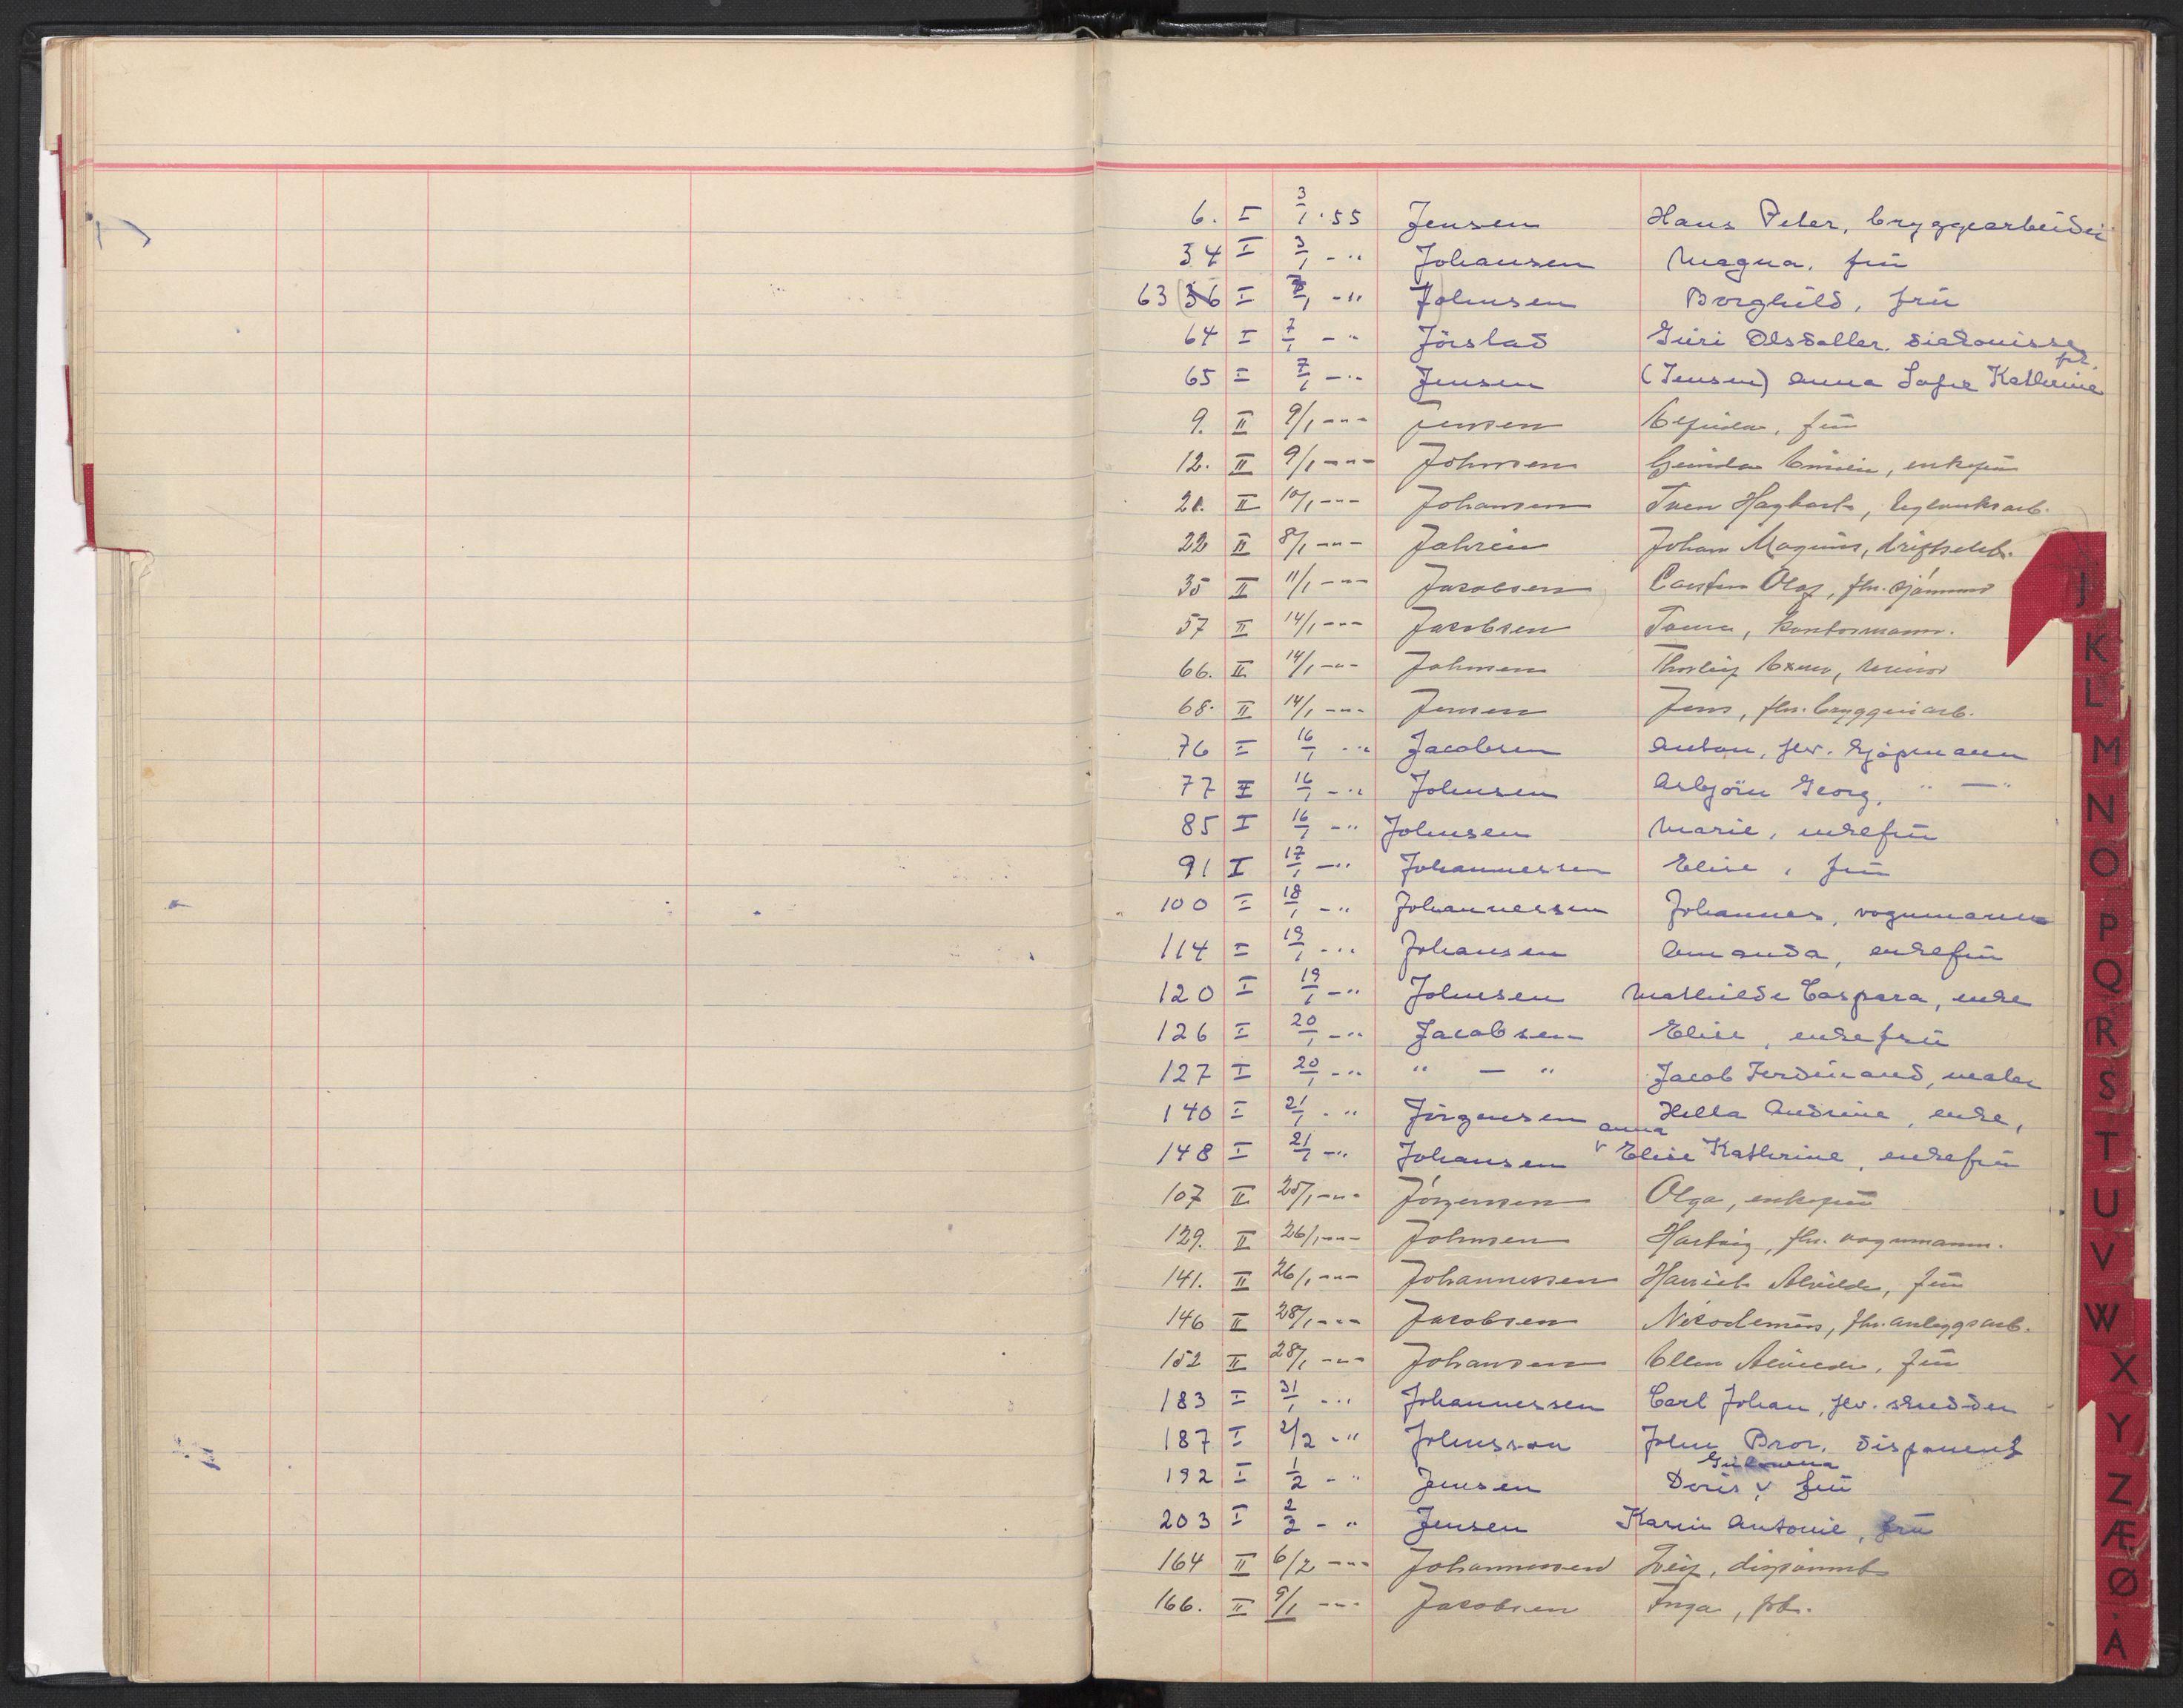 6. I 3/1 · 55 Jensen Hans Peter, bryggearbeider
34 I 3/1 - " Johansen Magna, frü
63 (36 I 7/1 - " Johnsen Borghild, frü
64 I 7/1 - " Jörstad Guri Olsdatter, diakonisse
65 I 7/1 - " Jensen (Jensen) Anna Sofie Kathrine frk.
9. II 9/1 - " - Jensen frü
12. II 9/1 - " - Johnsen enkefrü
21. II 10/1 - " - Johansen Sven Hagbart, teglverksarb.
22 II 8/1 - " - Jahren Johan Magnus,
35 II 11/1 - " - Jacobsen Carsten Olaf, fhv. sjømand
57 II 14/1 - " - Jacobsen kontormann.
66. II 14/1 - " - Johnsen Thorleif revisor
68. II 14/1 - " - Jensen Jens, fhv. bryggeriarb.
76 I 16/1 - " Jacobsen Anton, fhv. sjöpmann
77 I 16/1 - " Johnsen Asbjörn Georg, " — "
85 I 16/1 - " Johnsen Marie, enkefrü
91 I 17/1 - " Johannessen Elise, frü
100 I 18/1 - " Johannessen Johannes, vognmann
114 I 19/1 - " Johansen Amanda, enkefrü
120 I 19/1 - " Johnsen Mathilde Caspara, enke
126 I 20/1 - " Jacobsen Elise, enkefrü
127 I 20/1 - " " — " Jacob Ferdinand, maler
140 I 21/1 - " Jörgensen Hella Andrine, enke,
148 I 21/1 - " Johansen Anna Elise Kathrine, enkefrü
107 II 25/1 - " - Jörgensen Olga, enkefrü
129. II 26/1 - " - Johnsen Hartvig, fhv. vognmann.
141. II 26/1 - " - Johannessen Harriet Alvilde, frü
146 II 28/1 - " - Jacobsen Nikodemus, fhv. anleggsarb.
152 II 28/1 - " - Johansen Ellen frü
183 I 31/1 - " Johannessen Carl Johan, fhv. skredder
187 I 2/2 - " Johnsson John Bror, disponent
192 I 1/2 - " Jensen Doris frü
203 I 2/2 - " Jensen Karin Antonie, frü
164 II 6/2 - " - Johannessen Leif, disponent
166. II 9/1 - " - Jacobsen Inga, frk.
J
K
L
M
N
O
P
Q
R
S
T
U
V
W
X
Y
Z
Æ
Ø
Å